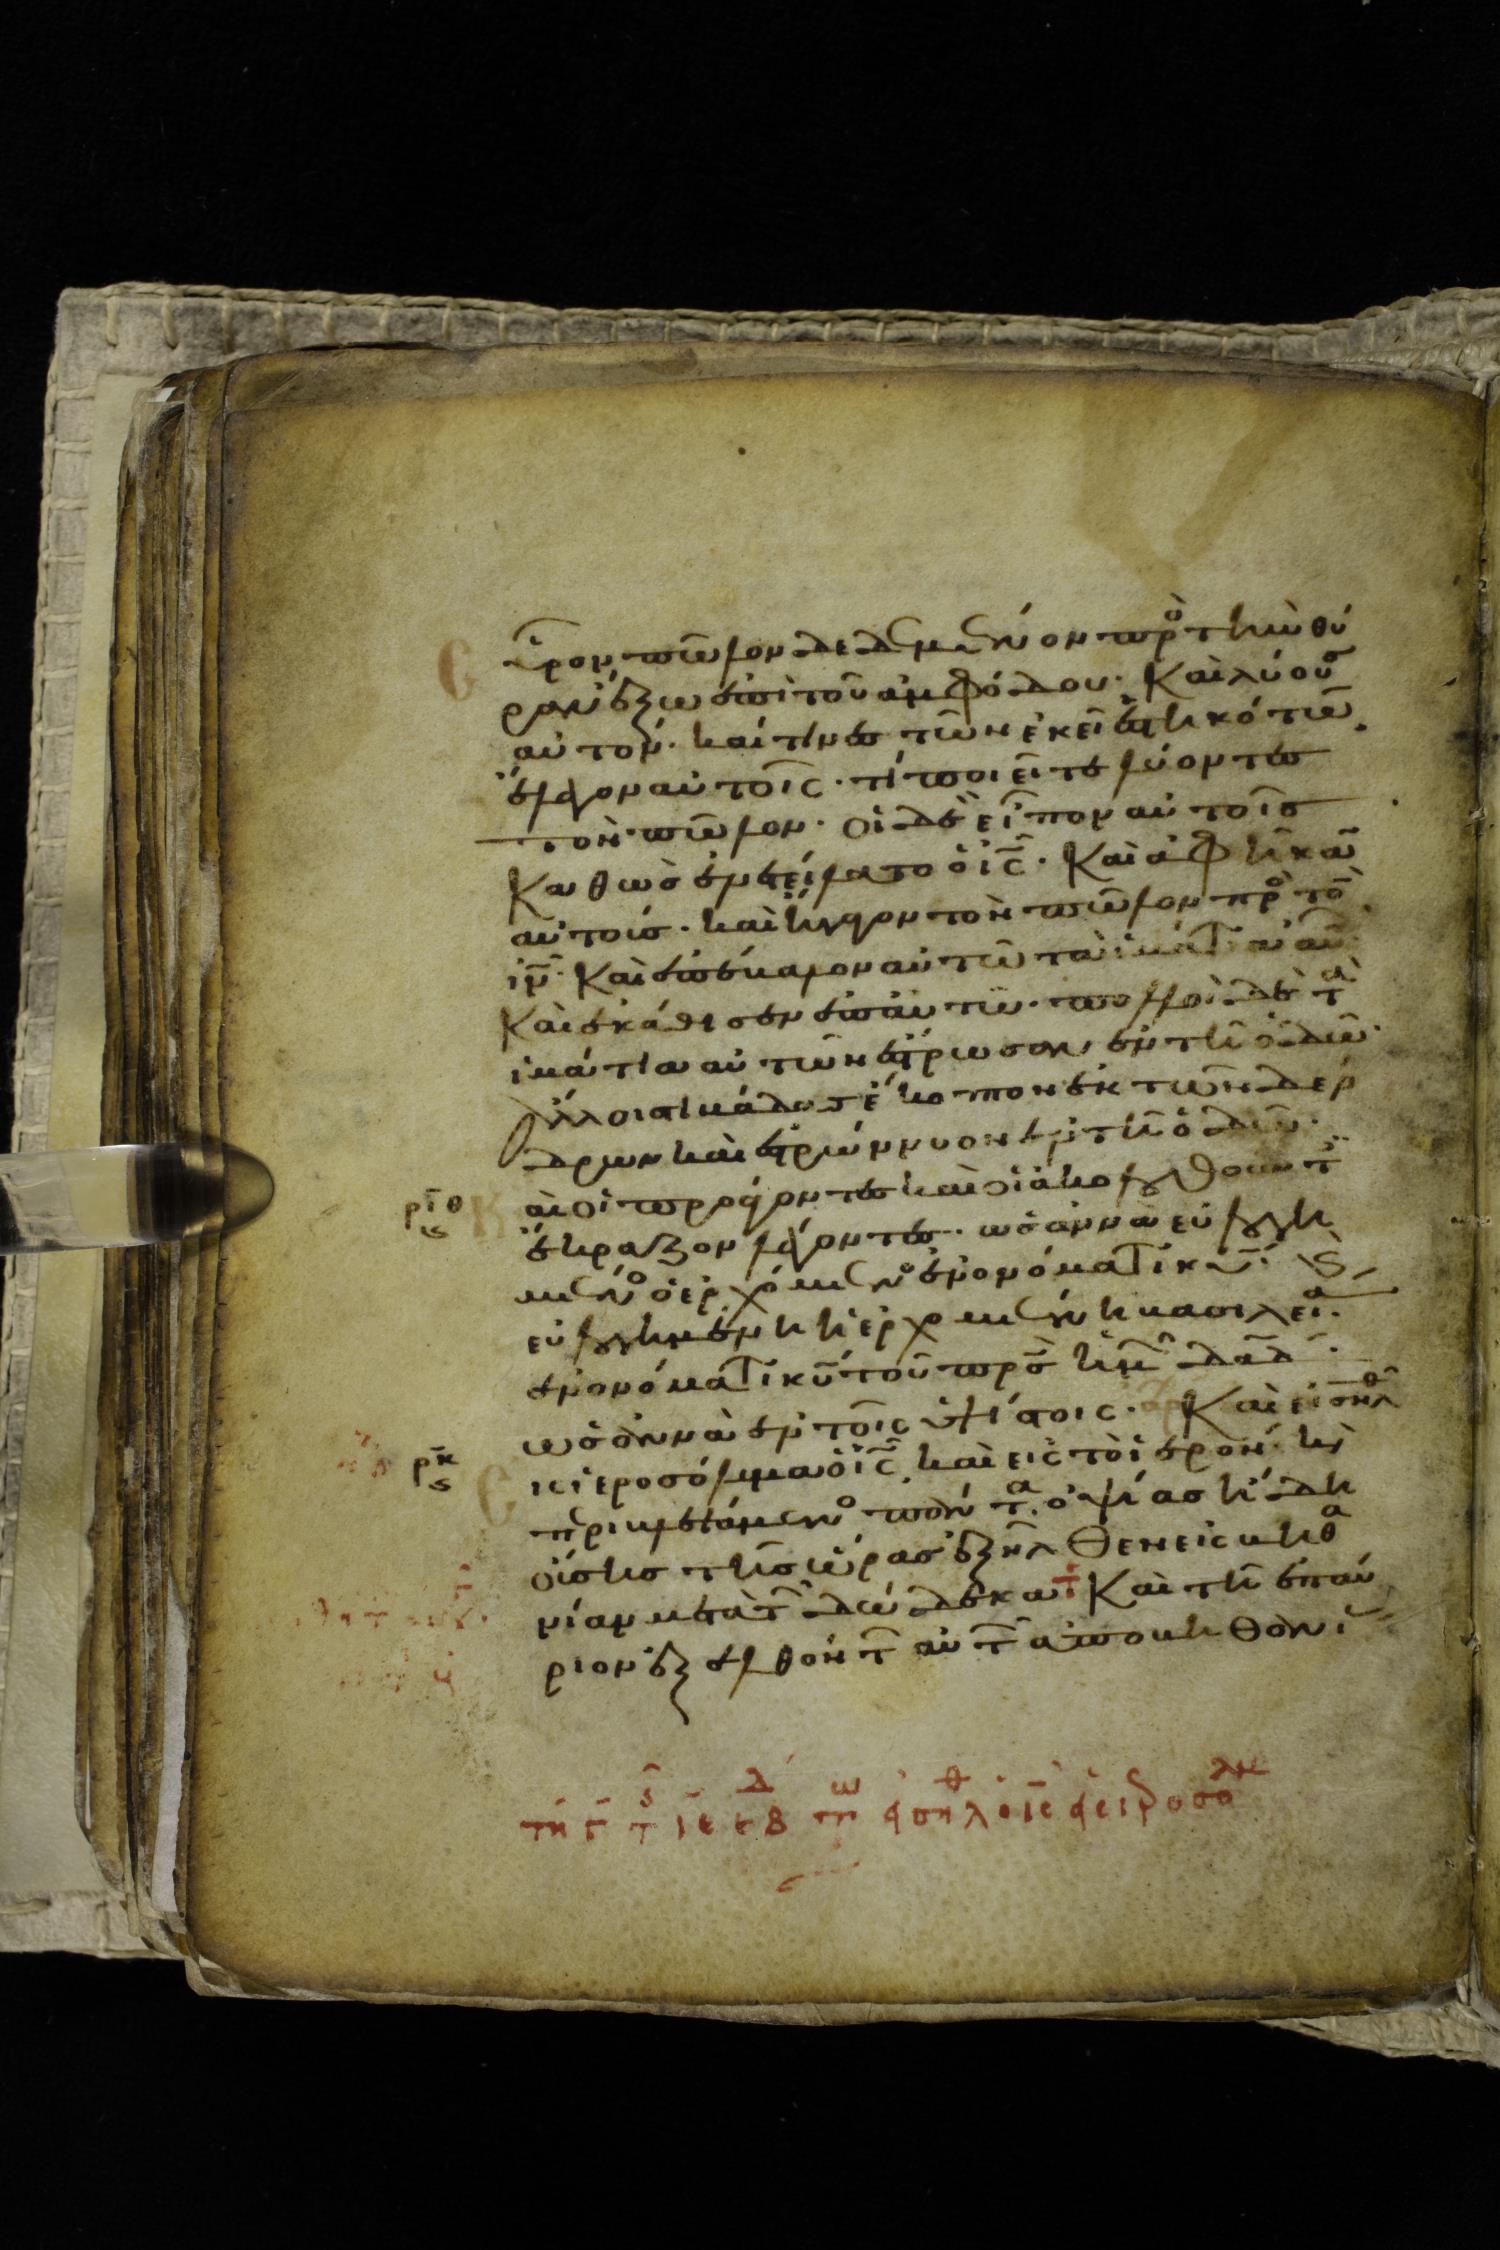 εῦρον πῶλον δεδεμένον πρὸ τὴν θύ
ραν ἔξω ἐπὶ τοῦ ἀμφόδου· Καὶ λύουσ
αὐτόν· καί τινες τῶν ἐκεῖ ἑστηκότων
ἔλεγον αὐτοῖς· τί ποιεῖτε λύοντες
τὸν πῶλον· οἱ δὲ εἶπον αὐτοῖς
Καθὼς ἐνετείλατο ὁ ι̅ς̅· Καὶ ἀφῆκαν
αὐτοὺς· καὶ ἤγαγον τὸν πῶλον πρὸ τὸν
ι̅ν̅· Καὶ ἐπέβαλον αὐτῶ τὰ ἱμάτια αὐτ
Καὶ ἐκάθισεν ἐπ' αὐτῶ· πολλοὶ δὲ τὰ
ἱμάτια αὐτῶν ἔστρωσαν ἐν τῆ ὁδῶ·
ἄλλοι στιβάδας ἔκοπτον ἐκ τῶν δέν
δρων καὶ ἐστρώννυον ἐν τῆ ὁδῶ·
ρ̅ι̅θ̅ Καὶ οἱ προάγοντες καὶ οἱ ἀκολουθοῦντ
ἔκραζον λέγοντες· ὡσαννὰ εὐλογη
μένο ὁ ἐρχόμενο ἐν ὀνόματι κ̅υ̅·
εὐλογημένη ἡ ἐρχομένη βασιλεία
ἐν ὀνόματι κ̅υ̅ τοῦ π̅ρ̅ς̅ ἡμ δ̅α̅δ̅·
ὡσαννὰ ἐν τοῖς ὑψίστοις· Καὶ εἰσῆλθ
ρ̅κ̅ εἰς ἱεροσόλυμα ὁ ι̅ς̅ καὶ εἰς τὸ ἱερόν· καὶ
περιβλεψάμενο πάντα· ὀψίας ἤδη
οὔσης τῆς ὥρας ἐξῆλθεν εἰς βηθα
νίαν μετὰ τ δώδεκα Καὶ τῆ ἐπαύ
ριον ἐξελθόντ αὐτ ἀπὸ βηθανί